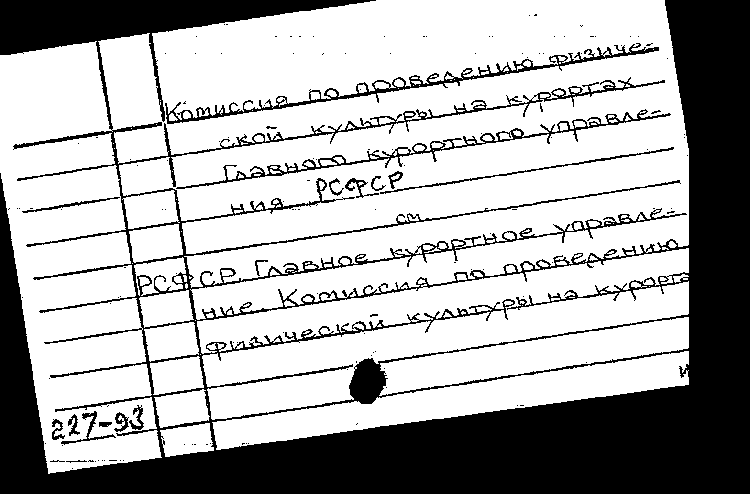 Комиссия по проведению физиче-
ской культуры на курортах
Главного курортного управле-
ния РСФСР
см.
РСФСР. Главное курортное управле-
ние. Комиссия по проведению
физической культуры на курорта
227-93
И